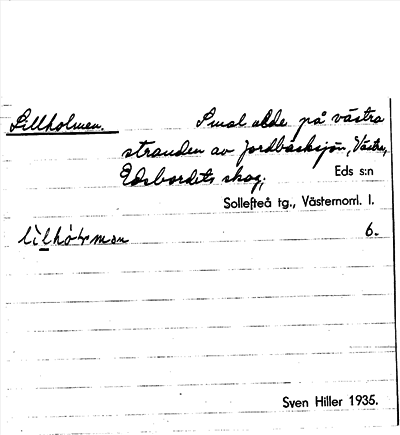 Lillholmen. Smal udde på västra
stranden av Jordbäcksjön, Västra,
Edsbordets skog, Eds s:n
Sollefteå tg., Västernorrl. l.
6.
Sven Hiller 1935.